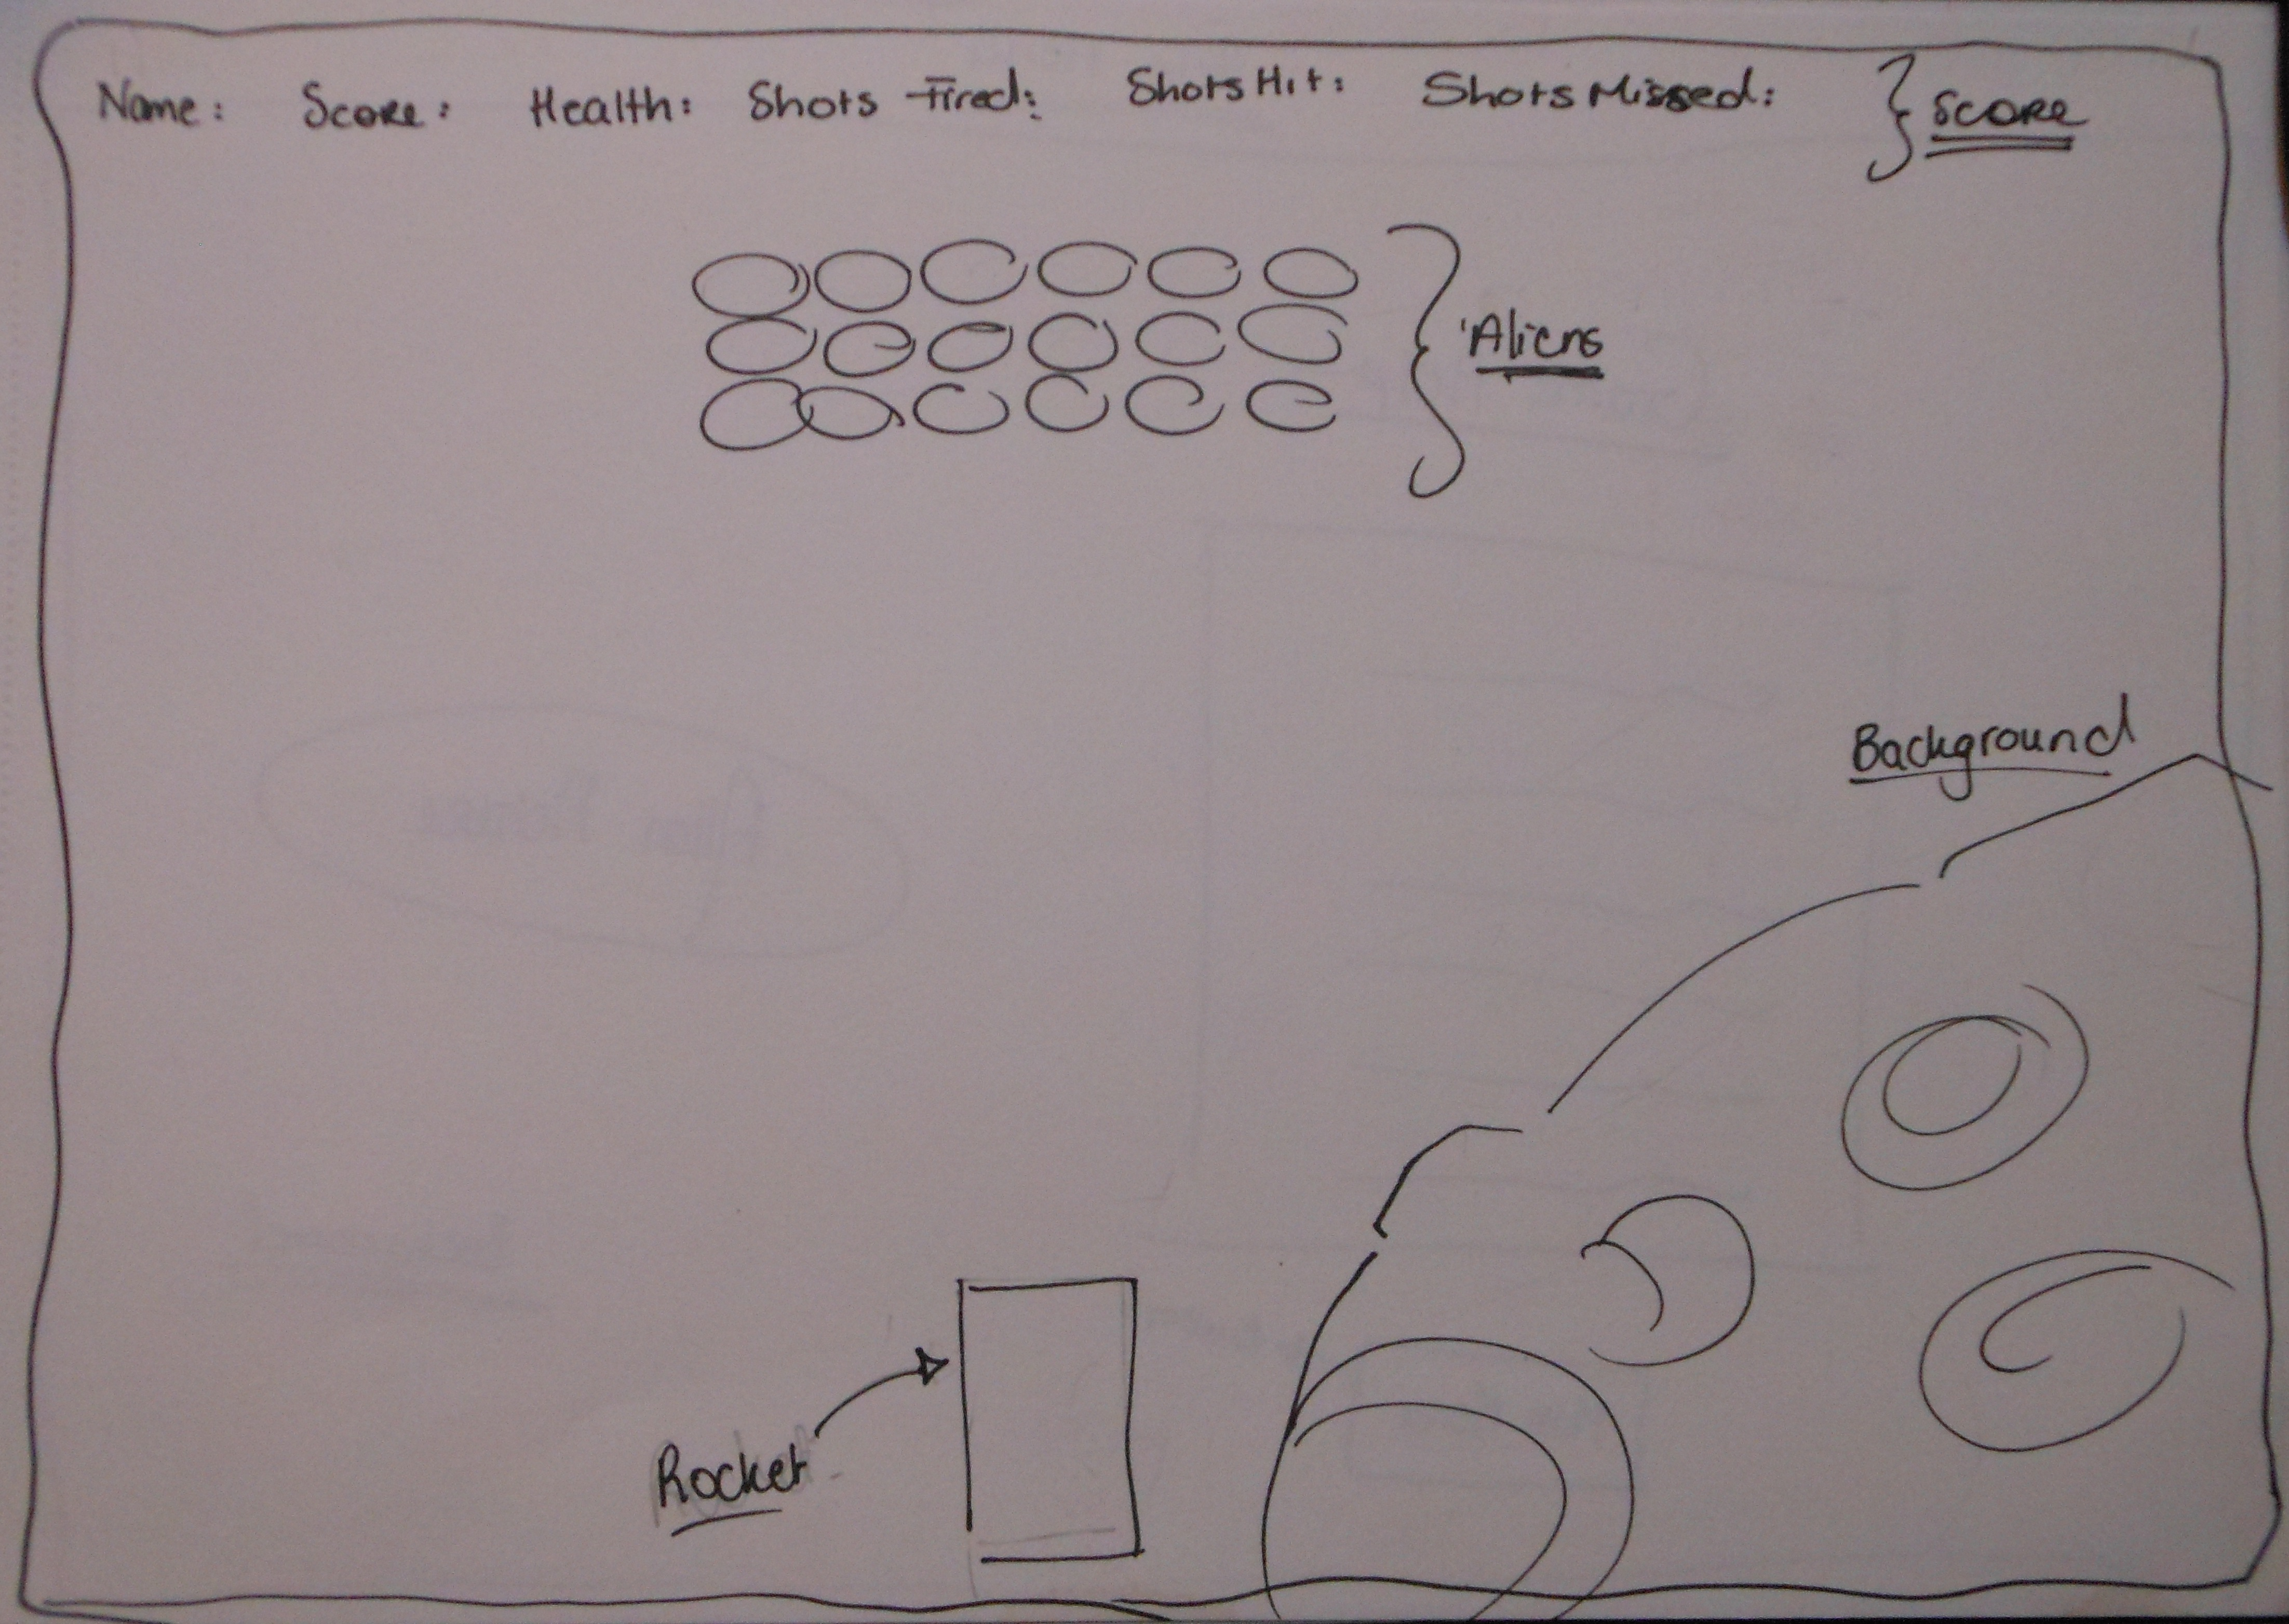 Name: Score: Health: Shots Fired: Shots Hit: Shots Missed: } Score
Aliens
Background
Rocket